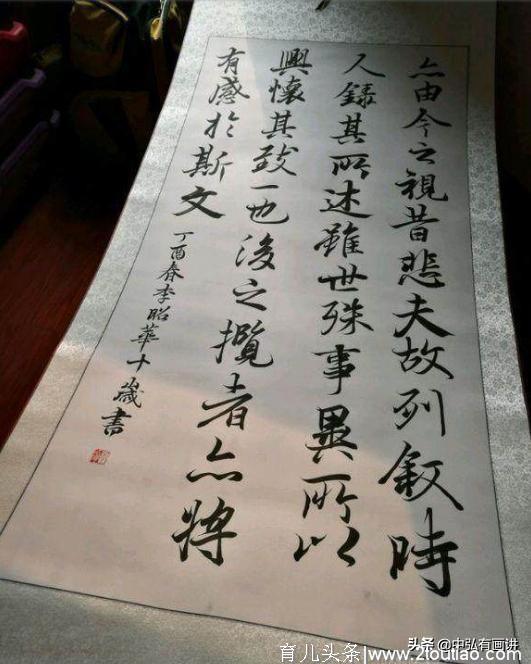 亦由今之視昔悲夫故列叙時
人錄其所述雖世殊事異所以
興懷其致一也後之攬者亦將
有感於斯文
丁酉春李昭華十歲書
头条 @中弘有画讲
育儿头条/www.21outiao.com